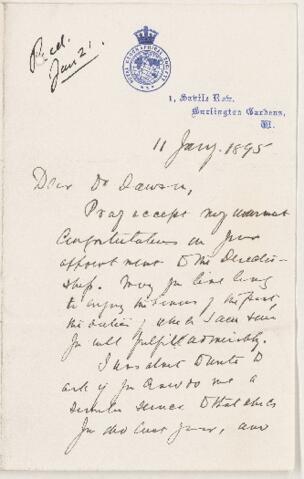 Recd.
Jan 21.
1, Savile Row,
Burlington Gardens,
W.
11 Jany. 1895
Dear Dr Dawson,
Pray accept my warmest
Congratulations on your
appointment to the Director-
ship. May you live long
to enjoy the honour of the post,
the duties of which I am sure
you will fulfill admirably.
I was about to write to
ask if you could do me a
similar service to that which
you did last year, and